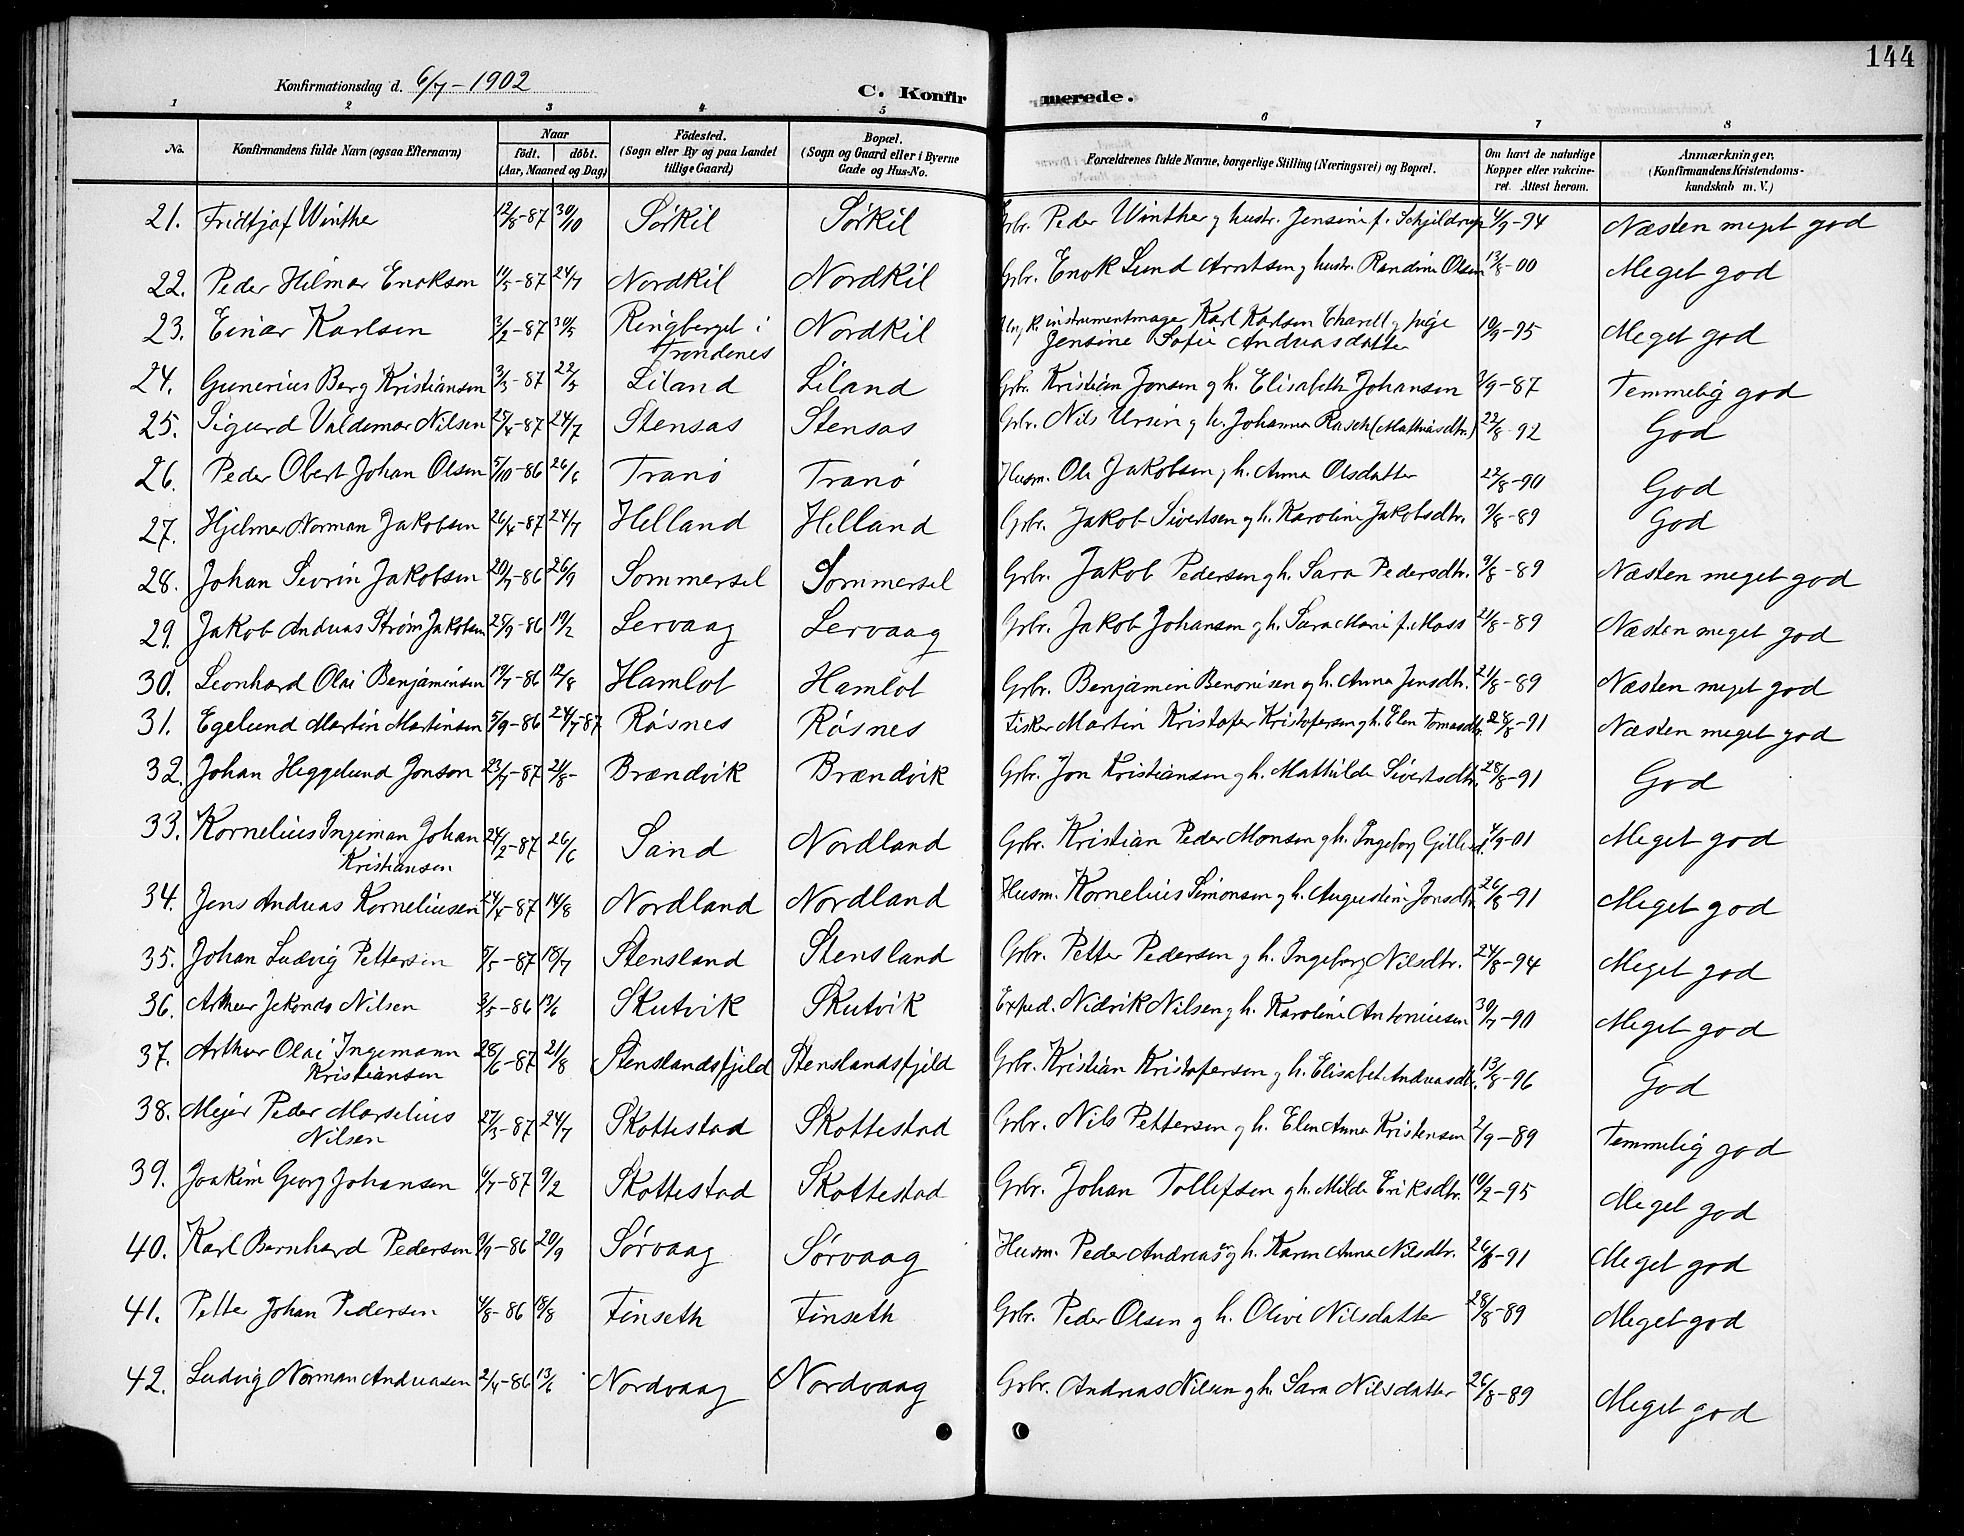 144
Konfirmationsdag d. 6/7 - 1902
C. Konfirmerede.
1 2 3 4 5 6 7 8
No. | Konfirmandens fulde Navn (ogsaa Efternavn) | Naar födt. döbt. (Aar, Maaned og Dag) | Födested. (Sogn eller By og paa Landet tillige Gaard) | Bopæl. (Sogn og Gaard eller i Byerne Gade og Hus-No. | Forældrenes fulde Navne, borgerlige Stilling (Næringsvei) og Bopæl. | Om havt de naturlige Kopper eller vakcineret. Attest herom. | Anmærkninger. (Konfirmandens Kristendomskundskab m. V.)
21. Fridtjof Winther 12/8-87 30/10 Sørkil Sørkil Grbr. Peder Winther g hustr. Jensine f. Schjeldrup 4/9-94 Næsten meget god
22. Peder Hilmar Enoksen 11/5-87 24/7 Nordkil Nordkil Grbr. Enok Lund Arntsen g hustr. Randine Olsen 13/8-00 Meget god
23. Einar Karlsen 3/2-87 30/5 Ringberget i Trondenes Nordkil instrumentmager Karl Karlsen g Pige Jensine Sofie Andreasdatter 10/9-95 Meget god
24. Gunerius Berg Kristiansen 3/3-87 22/5 Liland Liland Grbr. Kristian Jonsen g h. Elisabeth Johansen 3/9-87 Temmelig god
25. Sigurd Valdemar Nilsen 25/4-87 24/7 Stensøs Stensøs Grbr. Nils Ursin g h. Johanna Rasch (Mathiasdtr.) 22/8-92 God
26. Peder Obert Johan Olsen 5/10-86 26/6 Tranø Tranø Husm. Ole Jakobsen g h. Anna Olsdatter 22/8-90 God
27. Hjelmar Norman Jakobsen 26/4-87 24/7 Helland Helland Grbr. Jakob Sivertsen g h. Karoline Jakobsdtr. 9/8-89 God
28. Johan Sevrin Jakobsen 20/7-86 26/9 Sommersel Sommersel Grbr. Jakob Pedersen g h. Sara Pedersdtr. 9/8-89 Næsten meget god
29. Jakob Andreas Strøm Jakobsen 25/9-86 19/2 Lervaag Lervaag Grbr. Jakob Johansen g h. Sara Marie f. Moss 21/8-89 Næsten meget god
30. Leonhard Olai Benjaminsen 19/7-86 12/8 Hamlot Hamlot Grbr. Benjamin Benonisen g h. Anna Jensdtr. 21/8-89 Næsten meget god
31. Egelund Martin Martinsen 5/9-86 24/7-87 Røsnes Røsnes Fisker Martin Kristofer Kristofersen g h. Elen Tomasdtr. 28/8-91 Næsten meget god
32. Johan Heggelund Jonson 23/7-87 21/8- Brændvik Brændvik Grbr. Jon Kristiansen g h. Mathilde Sivertsdtr. 28/8-91 God
33. Kornelius Ingeman Johan Kristiansen 24/2-87 26/6 Sand Nordland Grbr. Kristian Peder Monsen g h. Ingeborg 4/9-01 Meget god
34. Jens Andreas Korneliusen 24/4-87 14/8 Nordland Nordland Husm. Kornelius Simonsen g h. Augustine Jonsdtr. 26/8-91 Meget god
35. Johan Ludvig Pettersen 5/5-87 18/7 Stensland Stensland Grbr. Petter Pedersen g h. Ingeborg Nilsdtr. 24/8-94 Meget god
36. Arthur Nilsen 3/5-86 13/6 Skutvik Skutvik Exped. Nidrik Nilsen g h. Karoline Antoniusen 30/7-90 Meget god
37. Arthur Olai Ingemann Kristiansen 28/6-87 21/8 Stenslandsfjeld Stenslandsfjeld Grbr. Kristian Kristofersen g h. Elisabet Andreasdtr. 13/8-96 God
38. Mejer Peder Marselius Nilsen 27/3-87 24/7 Skottestad Skottestad Grbr. Nils Pettersen g h. Elen Anna Kristensen 2/9-89 Temmelig god
39. Joakim Georg Johansen 6/7-87 9/2 Skottestad Skottestad Grbr. Johan Tollefsen g h. Milde Eriksdtr. 10/2-95 Meget god
40. Karl Bernhard Pedersen 9/9-86 20/9 Sørvaag Sørvaag Husm. Peder Andreas g h. Karen Anna Nilsdtr. 26/8-91 Meget god
41. Petter Johan Pedersen 4/8-86 18/8 Finseth Finseth Grbr. Peder Olsen g h. Olive Nilsdatter 28/8-89 Meget god
42. Ludvig Norman Andreasen 2/4-86 13/6 Nordvaag Nordvaag Grbr. Andreas Nilsen g h. Sara Nilsdatter 26/8-89 Meget god